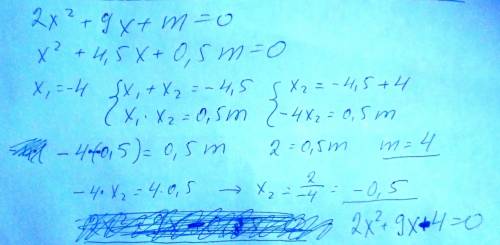 2x² + 9x + m = 0
x² + 4,5x + 0,5m = 0
x₁ = -4 { x₁ + x₂ = -4,5 { x₂ = -4,5 + 4
x₁ · x₂ = 0,5m -4x₂ = 0,5m
-4·(-0,5) = 0,5m 2 = 0,5m m = 4
-4 · x₂ = 4 · 0,5 → x₂ = 2/-4 = -0,5
2x² + 9x + 4 = 0